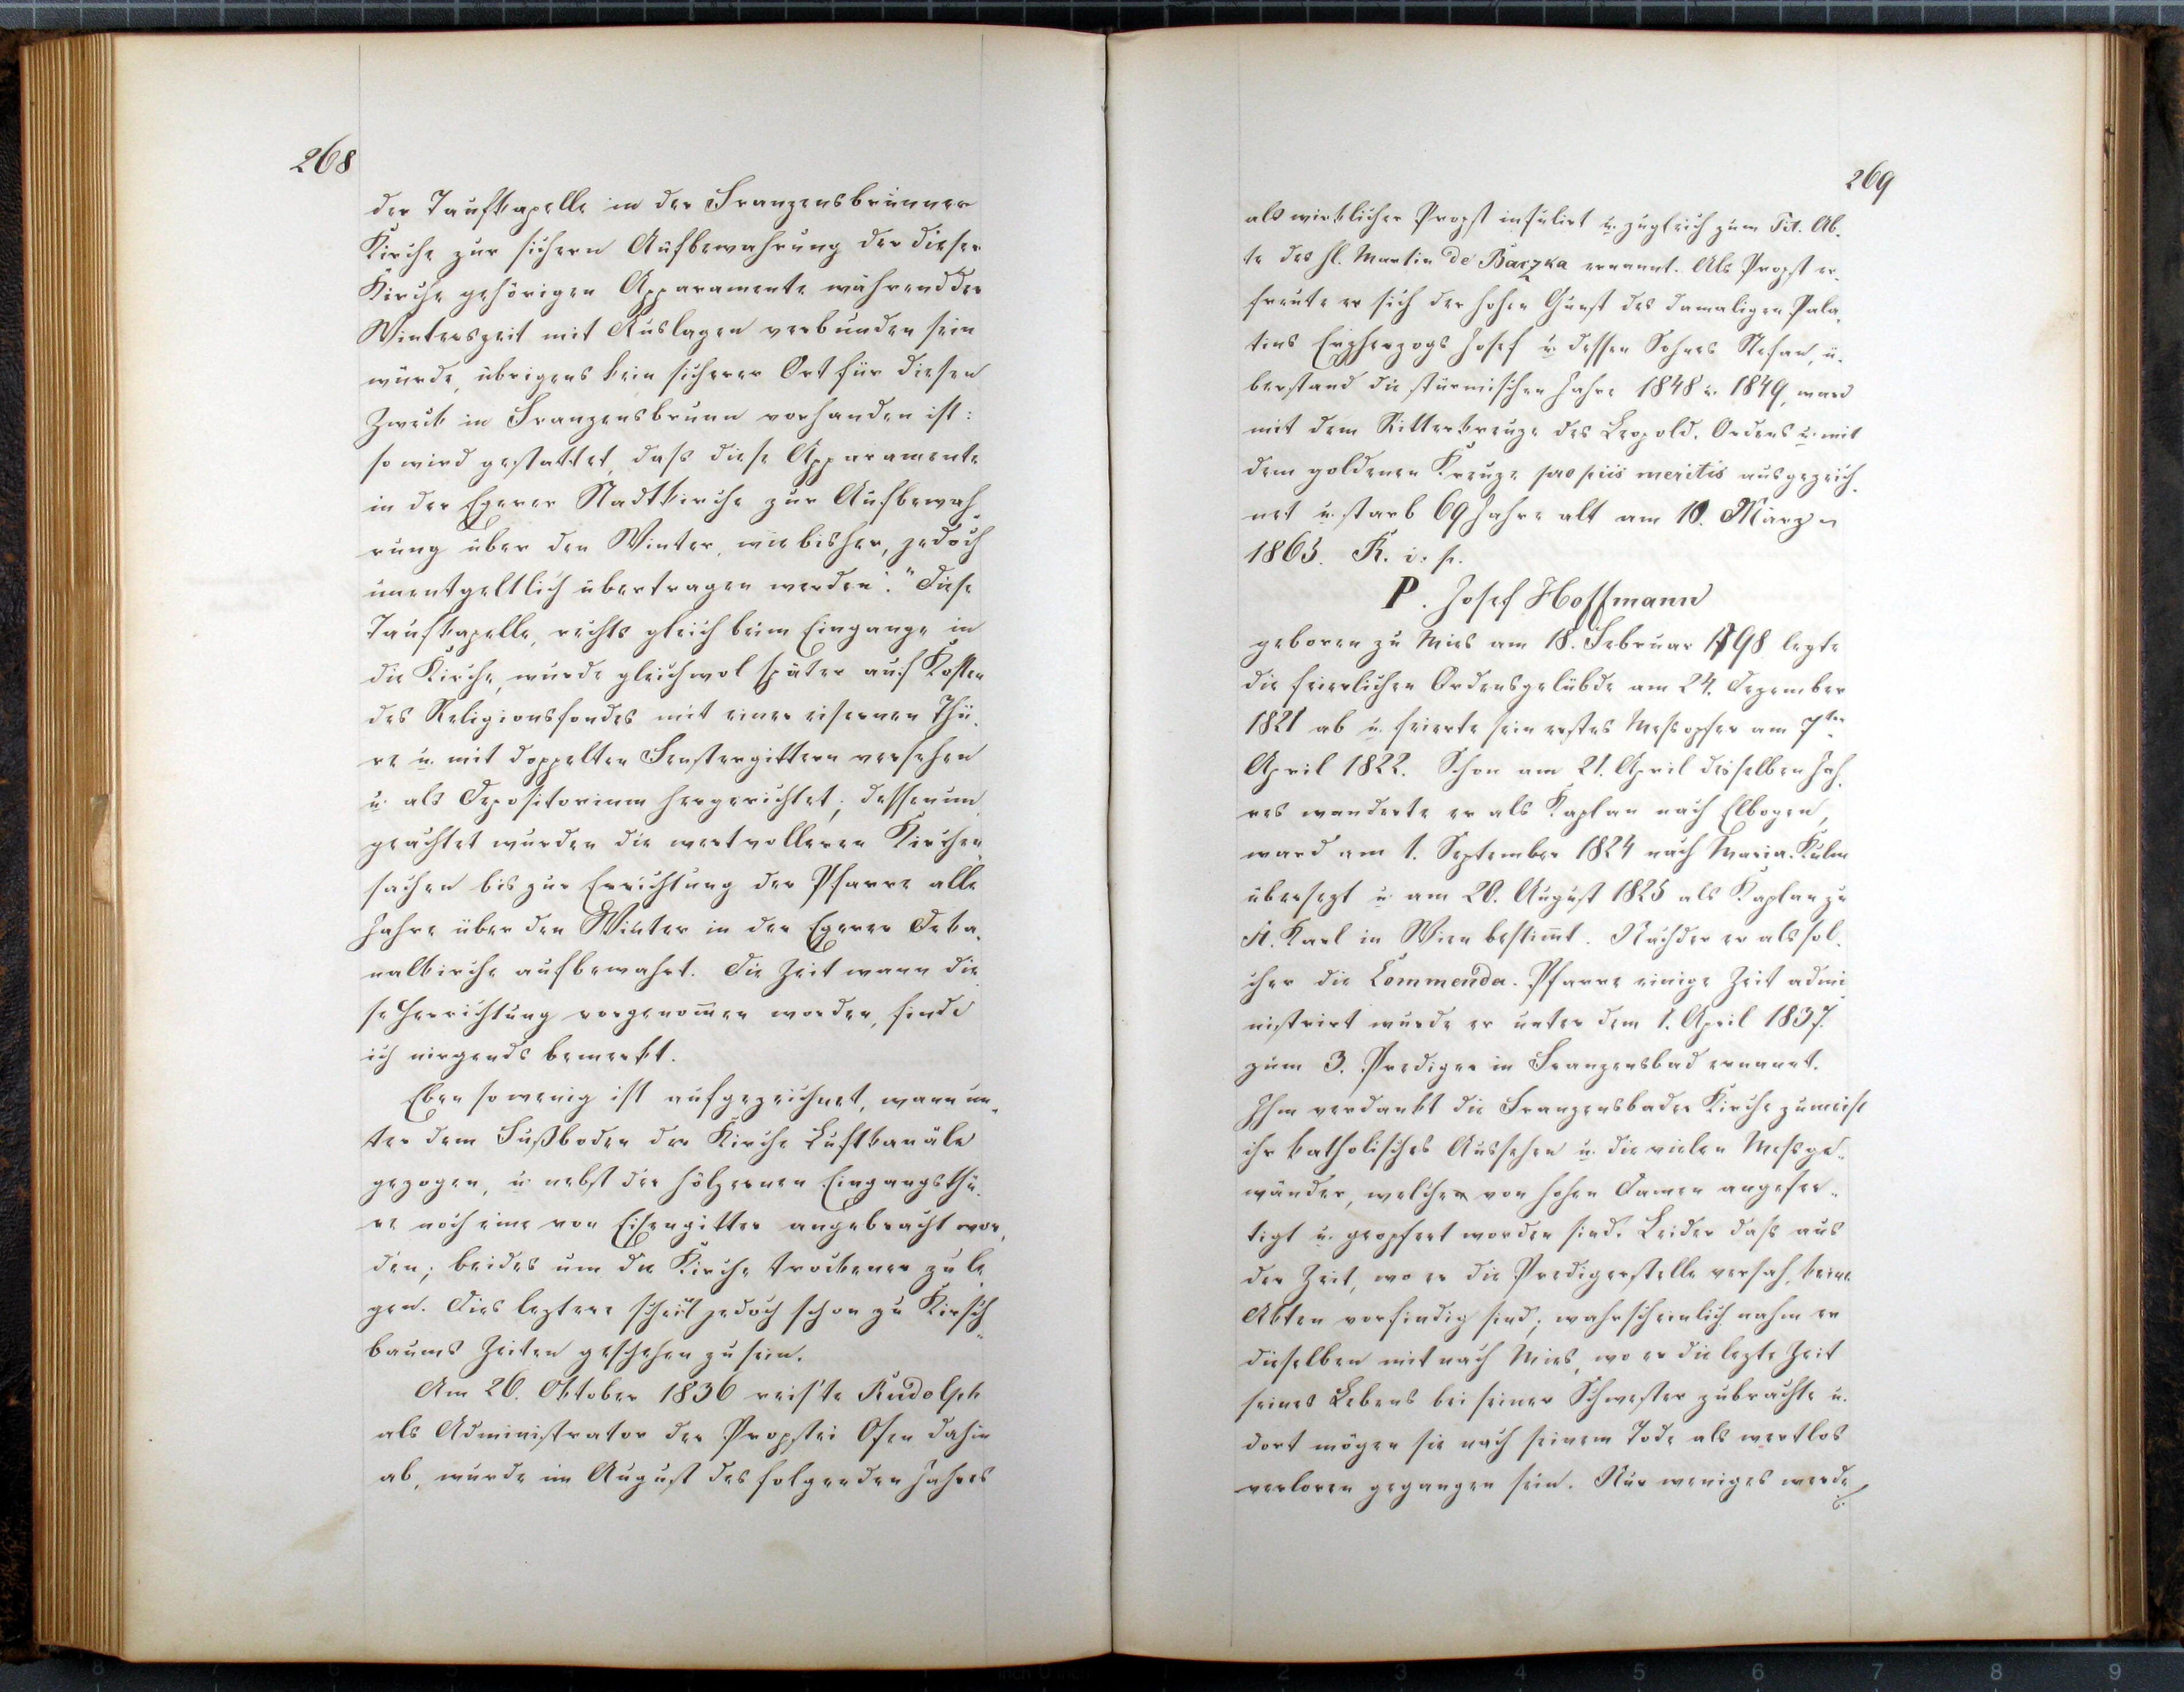 268
der Taufkapelle in der Franzensbrunner
Kirche zur sichern Aufbewahrung der dieser
Kirche gehörigen Apparamente während der
Winterszeit mit Auslagen verbunden sein
würde, übrigens kein sicherer Ort für diesen
Zweck in Franzensbrunn vorhanden ist:
so wird gestattet, dass diese Apparamente
in der Egerer Stadtkirche zur Aufbewah-
rung über den Winter, wie bisher, jedoch
unentgeltlich übertragen werden." Diese
Taufkapelle, rechts gleich beim Eingange in
die Kirche, wurde gleichwol später auf Kosten
des Religionsfondes mit einer eisernen Thü-
re u. mit doppelten Fenstergittern versehen
u. als Depositorium hergerichtet; dessenun-
geachtet wurden die wertvolleren Kirchen-
sachen bis zur Errichtung der Pfarre alle
Jahre über den Winter in der Egerer Deka-
nalkirche aufbewahrt. Die Zeit wann die-
se Herrichtung vorgenom̄en worden, finde
ich nirgends bemerkt.
Eben so wenig ist aufgezeichnet, wann un-
ter dem Fußboden der Kirche Luftkanäle
gezogen, u. nebst der hölzernen Eingangsthü-
re noch eine von Eisengitter angebracht wor-
den; beides um die Kirche trockener zu le-
gen. Dies leztere scheint jedoch schon zu Kirsch-
baums Zeiten geschehen zu sein.
Am 26. Oktober 1836 reis'te Rudolph
als Administrator der Propstei Ofen dahin
ab, wurde im August des folgenden Jahres
269
als wirklicher Propst infulirt u. zugleich zum Tit. Ab-
te des hl. Martin de Baczka ernannt. Als Propst er-
freute er sich der hohen Gunst des damaligen Pala-
tins Erzherzogs Josef u. dessen Sohnes Stefan, ü-
berstand die stürmischen Jahre 1848 u. 1849, ward
mit dem Ritterkreuze des Leopold. Ordens u. mit
dem goldenen Kreuze pro piis meritis ausgezeich-
net u. starb 69 Jahre alt am 10. März
1865. R. i. p.
P. Josef Hoffmann
geboren zu Mies am 18. Februar 1798 legte
die feierlichen Ordensgelübde am 24. Dezember
1821 ab u. feierte sein erstes Messopfer am 7ten
April 1822. Schon am 21. April desselben Jah-
res wanderte er als Kaplan nach Elbogen,
ward am 1. September 1824 nach Maria-Kulm
übersezt u. am 20. August 1825 als Kaplan zu
St. Karl in Wien bestim̄t. Nachdem er als sol-
cher die Commenda-Pfarre einige Zeit admi-
nistrirt wurde er unter dem 1. April 1837
zum 3. Prediger in Franzensbad ernannt.
Ihm verdankt die Franzensbader Kirche zumeist
ihr katholisches Aussehen u. die vielen Messge-
wänder, welche von hohen Damen angefer-
tigt u. geopfert worden sind. Leider dass aus
der Zeit, wo er die Predigerstelle versah, keine
Akten vorfindig sind; wahrscheinlich nahm er
dieselben mit nach Mies, wo er die lezte Zeit
seines Lebens bei seiner Schwester zubrachte u.
dort mögen sie nach seinem Tode als wertlos
verloren gegangen sein. Nur weniges werde